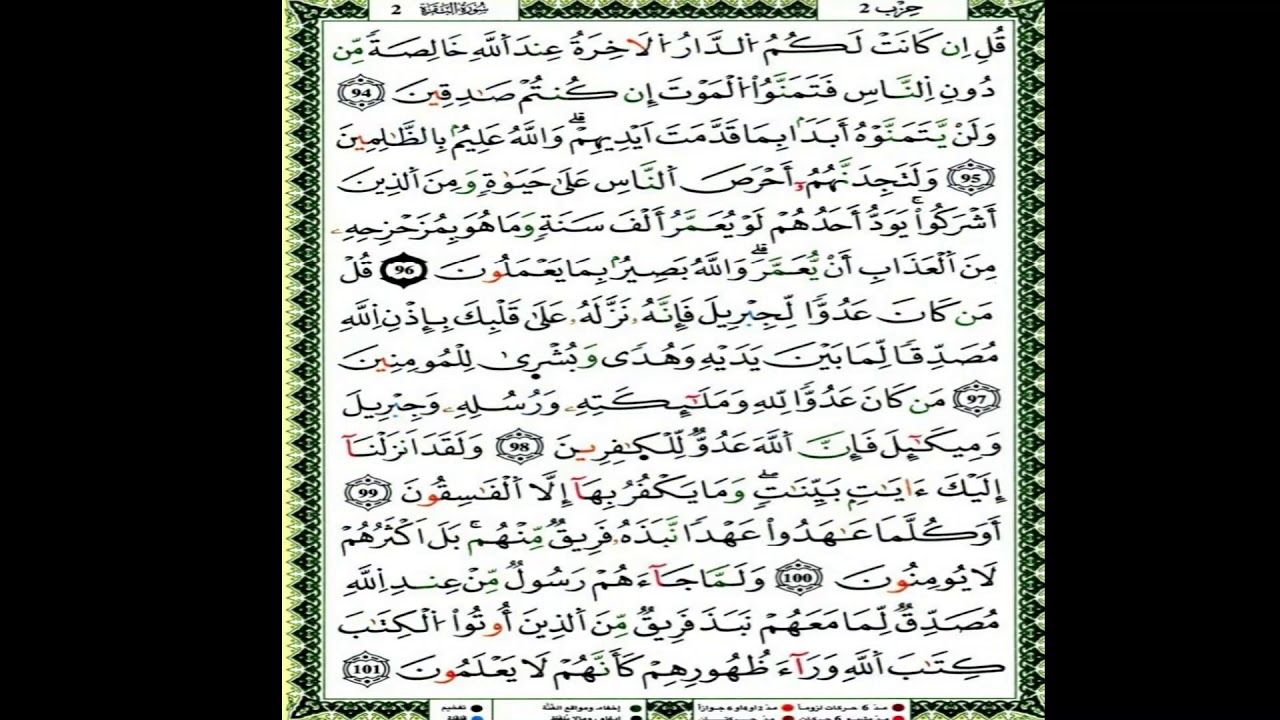 حِزْب 2
سُورَةُ البَقَرَة 2
قُلِ اِن كَانَتْ لَكُمُ اُلدَّارُ اُلَاخِرَةُ عِندَ اَللَّهِ خَالِصَةٗ مِّن
دُونِ اِلنَّاسِ فَتَمَنَّوُاْ اُلْمَوْتَ إِن كُنتُمْ صَٰدِقِينَ 94
وَلَنْ يَّتَمَنَّوْهُ أَبَدَاۢ بِمَا قَدَّمَتَ اَيْدِيهِمْۖ وَاللَّهُ عَلِيمُۢ بِالظَّٰلِمِينَ
95 وَلَتَجِدَنَّهُمُۥٓ أَحْرَصَ اَلنَّاسِ عَلَىٰ حَيَوٰةٖ وَمِنَ اَلذِينَ
أَشْرَكُواْۚ يَوَدُّ أَحَدُهُمْ لَوْ يُعَمَّرُ أَلْفَ سَنَةٖ وَمَا هُوَ بِمُزَحْزِحِهِۦ
مِنَ اَلْعَذَابِ أَنْ يُّعَمَّرَۖ وَاللَّهُ بَصِيرُۢ بِمَا يَعْمَلُونَ 96 قُلْ
مَن كَانَ عَدُوّٗا لِّجِبْرِيلَ فَإِنَّهُۥ نَزَّلَهُۥ عَلَىٰ قَلْبِكَ بِإِذْنِ اِللَّهِ
مُصَدِّقٗا لِّمَا بَيْنَ يَدَيْهِ وَهُدٗى وَبُشْرٜىٰ لِلْمُومِنِينَ
97 مَن كَانَ عَدُوّٗا لِّلهِ وَمَلَٰٓئِكَتِهِۦ وَرُسُلِهِۦ وَجِبْرِيلَ
وَمِيكَٰٓئِلَ فَإِنَّ اَللَّهَ عَدُوّٞ لِّلْكٰٜفِرِينَ 98 وَلَقَدَ اَنزَلْنَآ
إِلَيْكَ ءَايَٰتِۢ بَيِّنَٰتٖۖ وَمَا يَكْفُرُ بِهَآ إِلَّا اَلْفَٰسِقُونَ 99
أَوَكُلَّمَا عَٰهَدُواْ عَهْدٗا نَّبَذَهُۥ فَرِيقٞ مِّنْهُمۚ بَلَ اَكْثَرُهُمْ
لَا يُومِنُونَ 100 وَلَمَّا جَآءَهُمْ رَسُولٞ مِّنْ عِندِ اِللَّهِ
مُصَدِّقٞ لِّمَا مَعَهُمْ نَبَذَ فَرِيقٞ مِّنَ اَلذِينَ أُوتُواْ اُلْكِتَٰبَ
كِتَٰبَ اَللَّهِ وَرَآءَ ظُهُورِهِمْ كَأَنَّهُمْ لَا يَعْلَمُونَ 101
مدّ 6 حركات لزوماً مدّ 2 او 4 او 6 جوازاً إخفاء، ومواقع الغنّة تفخيم